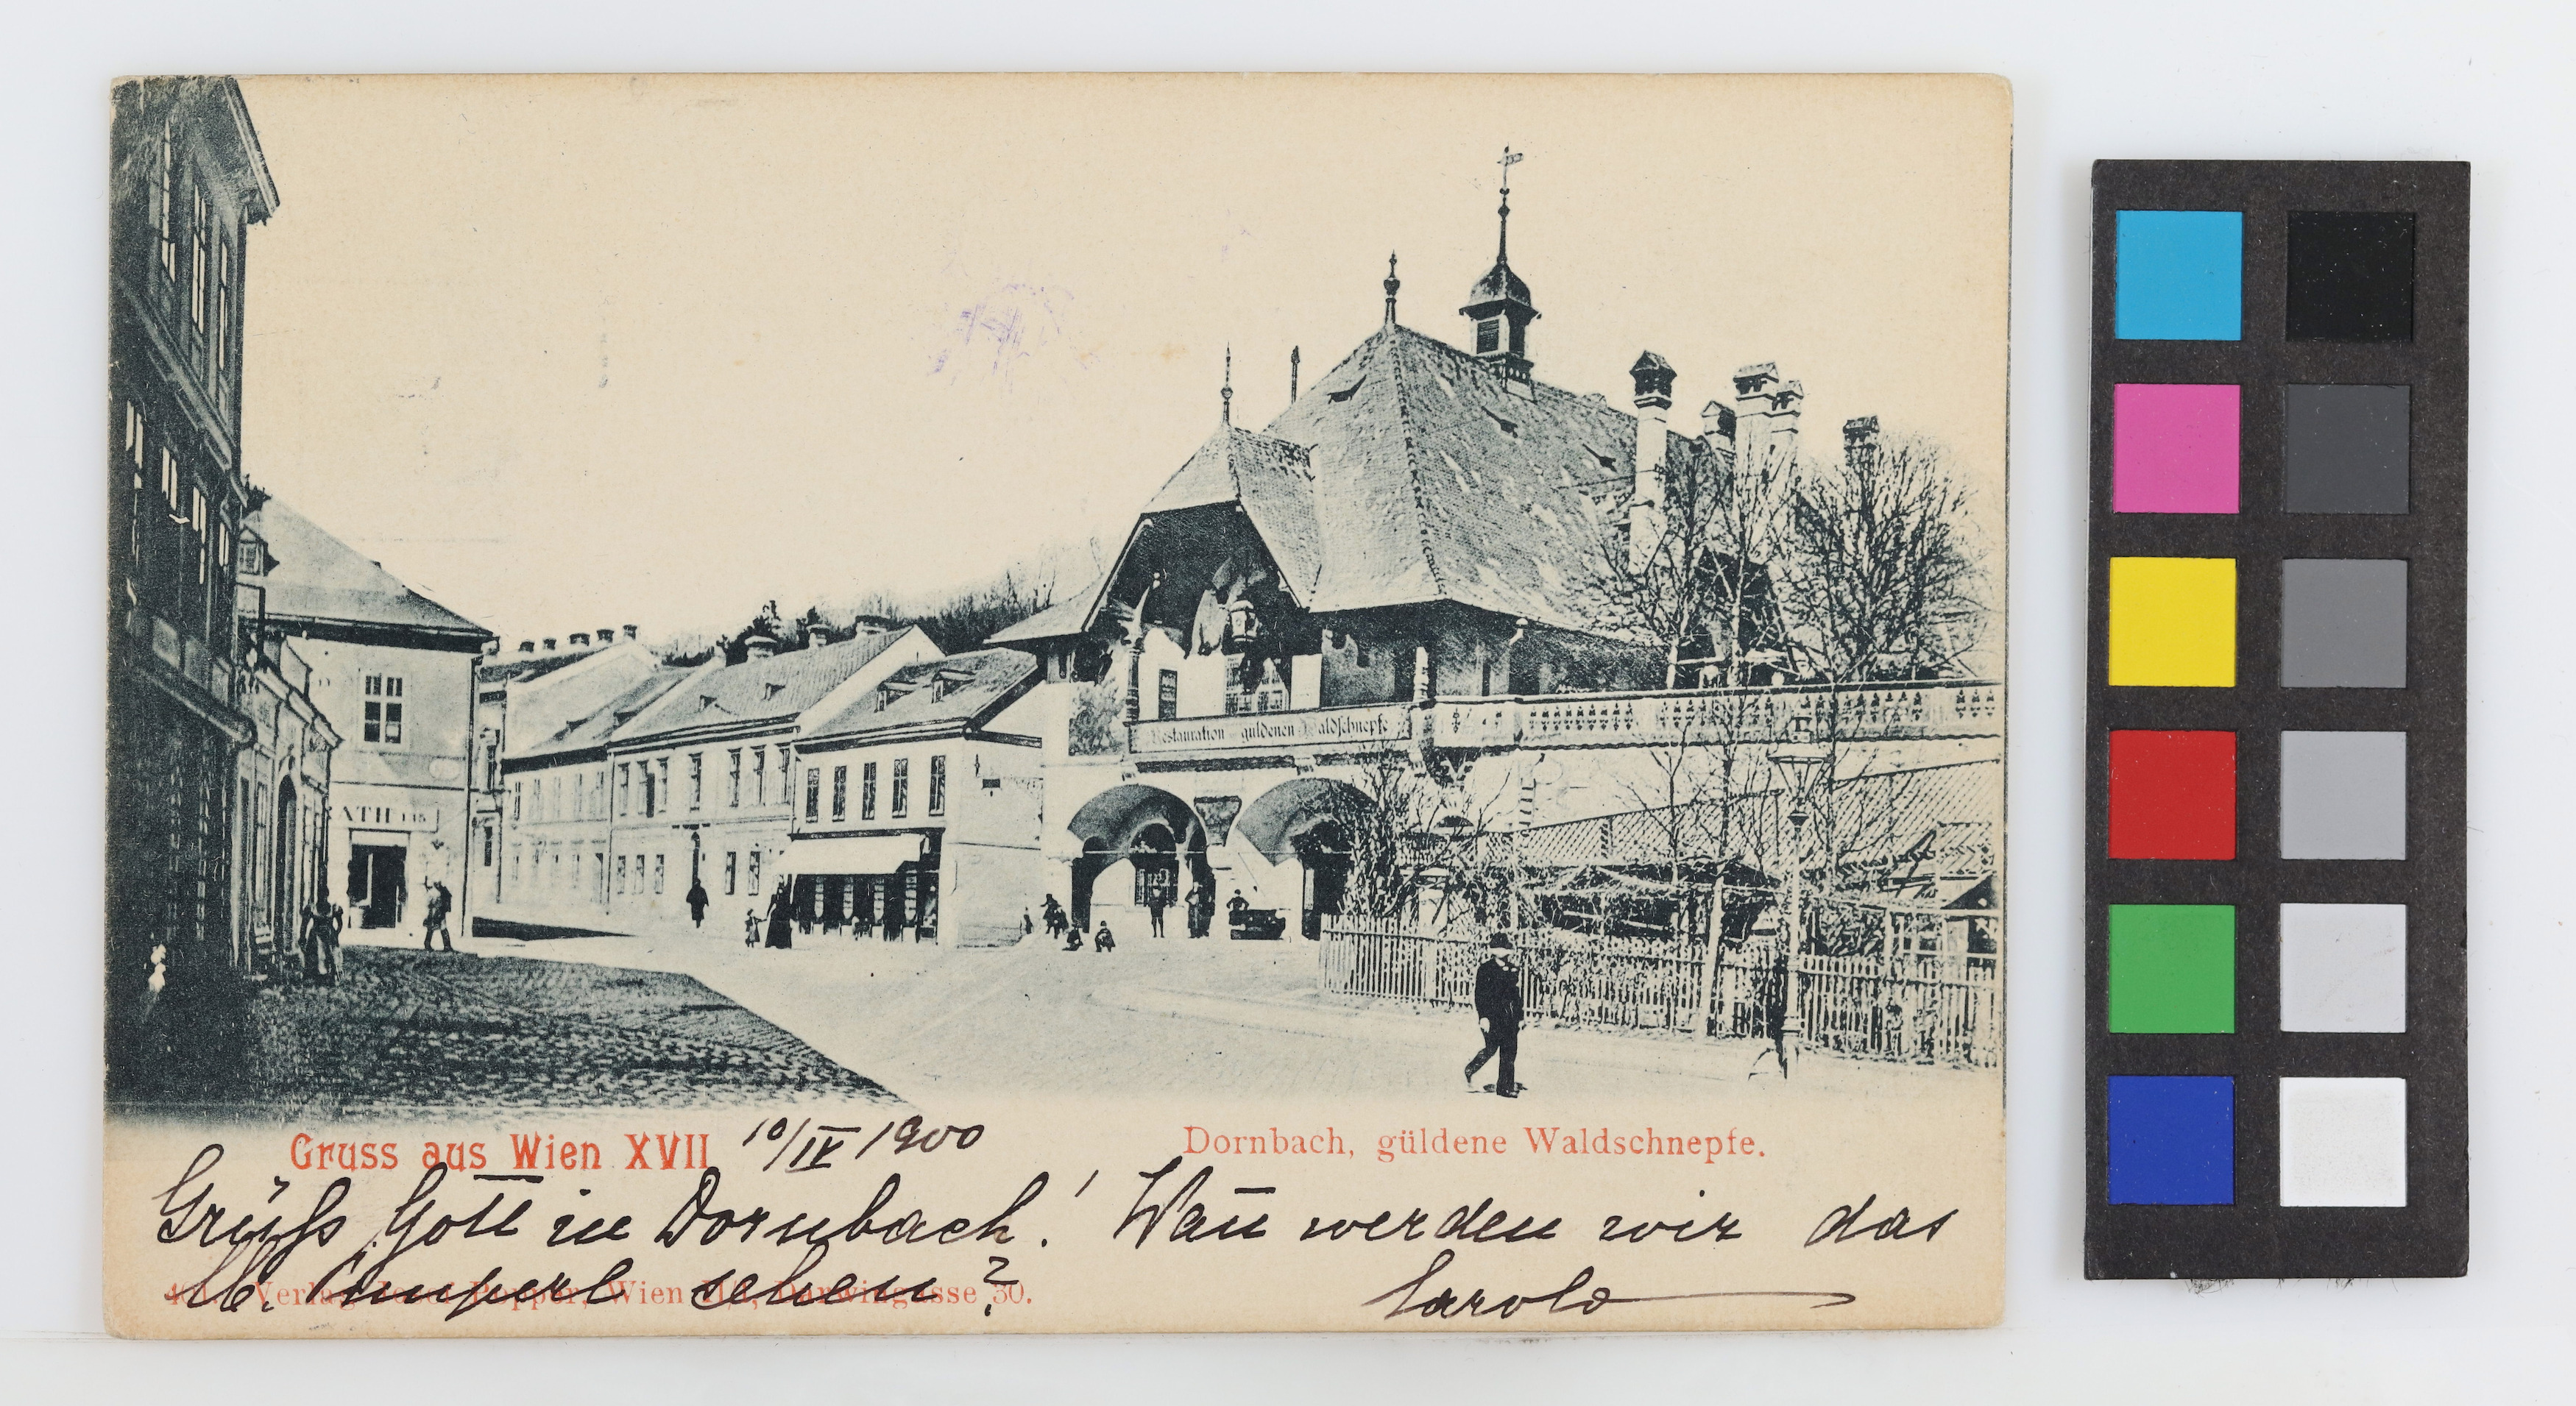 Restauration güldenen Waldschnepfe
Gruss aus Wien XVII
10/IV 1900
Dornbach, güldene Waldschnepfe.
Grüß Gott in Dornbach! Wañ werden wir das
sehen?
Verlag Josef Popper, Wien II/1, Darwingasse 30.